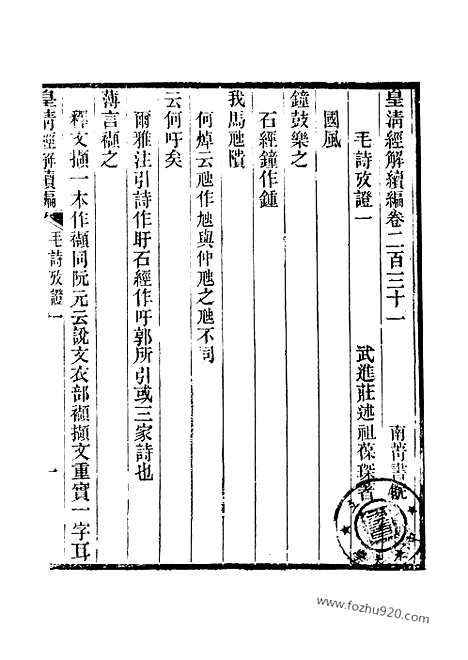 皇清經解續編卷二百三十一
南菁書院
毛詩攷證一
武進莊述祖葆琛著
國風
鐘鼓樂之
石經鐘作鍾
我馬虺隤
何焯云虺作虺與仲虺之虺不同
云何吁矣
爾雅注引詩作盱石經作吁郭所引或三家詩也
薄言襭之
釋文擷一本作襭同阮元云說文衣部襭擷文重實一字耳
皇清經解續編
毛詩攷證一
一
www.fozhu920.com